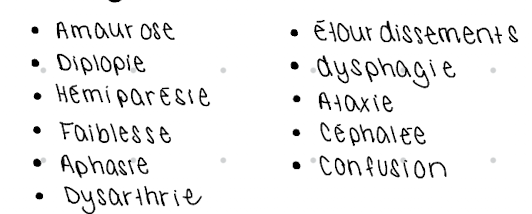 • Amaurose
• Diplopie
• Hémiparésie
• Faiblesse
• Aphasie
• Dysarthrie
• étourdissements
• dysphagie
• Ataxie
• Céphalée
• Confusion